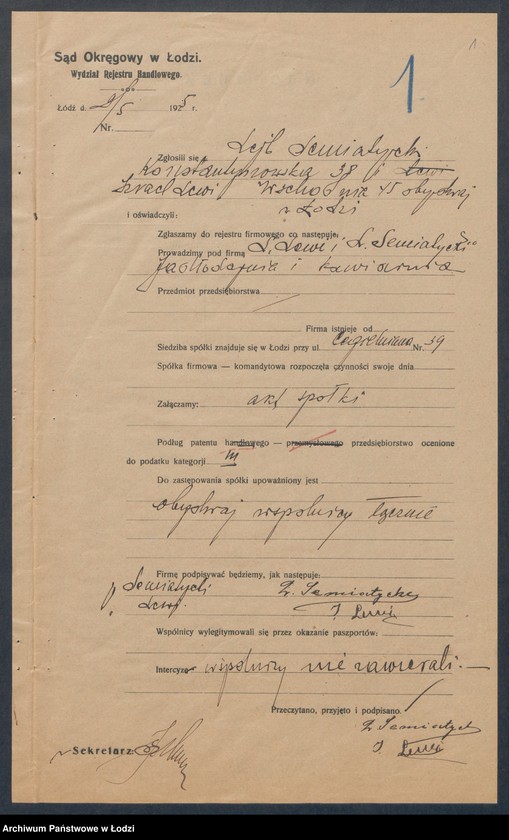 1
Sąd Okręgowy w Łodzi.
Wydział Rejestru Handlowego.
1.
Łódź d. 2/5 1925 r.
Nr.
Zgłosili się Lejb Semiatycki
Konstantynowska 38 i Lewi
Izrael Lewi Wschodnia 45 obydwaj
z Łodzi
i oświadczyli:
Zgłaszamy do rejestru firmowego co następuje:
Prowadzimy pod firmą „I. Lewi i L. Semiatycki"
Jadłodajnia i kawiarnia
Przedmiot przedsiębiorstwa
Firma istnieje od
Siedziba spółki znajduje się w Łodzi przy ul. Cegielniana Nr. 39
Spółka firmowa — komandytowa rozpoczęła czynności swoje dnia
Załączamy: akt spółki
Podług patentu handlowego — przemysłowego przedsiębiorstwo ocenione
do podatku kategorji III
Do zastępowania spółki upoważniony jest
obydwaj wspólnicy łącznie
Firmę podpisywać będziemy, jak następuje:
Semiatycki L. Semiatycki
Lewi. I. Lewi
Wspólnicy wylegitymowali się przez okazanie paszportów:
Intercyz wspólnicy nie zawierali.
Przeczytano, przyjęto i podpisano.
L. Semiatycki
I. Lewi
Sekretarz:
Archiwum Państwowe w Łodzi